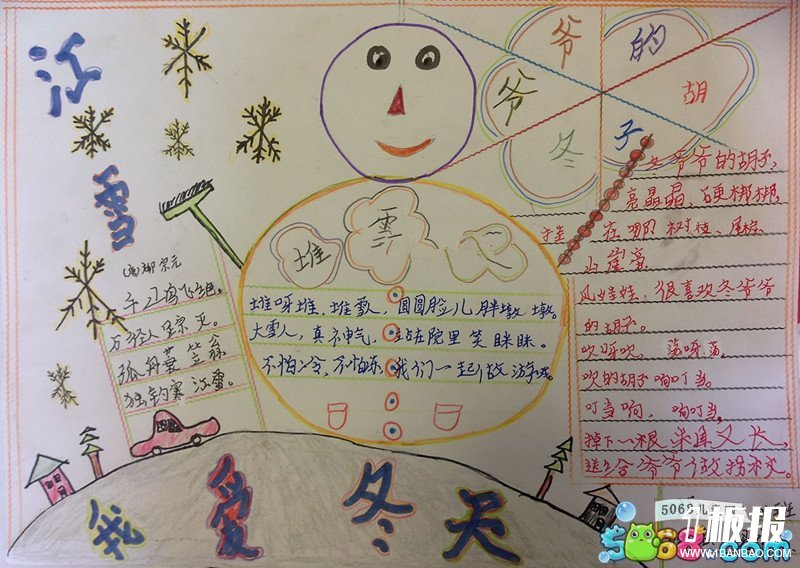 江
雪
(唐)柳宗元
千山鸟飞绝。
万径人踪灭。
孤舟蓑笠翁
独钓寒江雪。
堆
雪
人
堆呀堆，堆雪人，圆圆脸儿胖墩墩。
大雪人，真神气，站在院里笑眯眯。
不怕冷，不怕冻，我们一起做游戏。
冬爷爷的胡子
冬爷爷的胡子，
亮晶晶，硬梆梆
挂在哪 树枝、屋檐
山崖旁。
风娃娃，很喜欢冬爷爷
的胡子。
吹呀吹， 荡呀荡，
吹的胡子响叮当。
叮当响， 响叮当，
掉下一根尖又长，
送给爷爷做拐杖。
我爱冬天
班
1板报
WWW.1BANBAO.COM